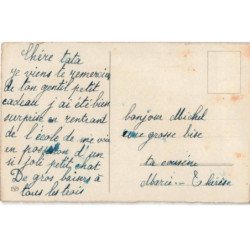 Chère tata
je viens te remercier
de ton gentil petit
cadeau j'ai été bien
surprise en rentrant
de l'école de me voir
en possession d'un
si joli petit chat
De gros baisers à
tous les trois
bonjour Michel
une grosse bise
ta cousine
Marie-Thérèse